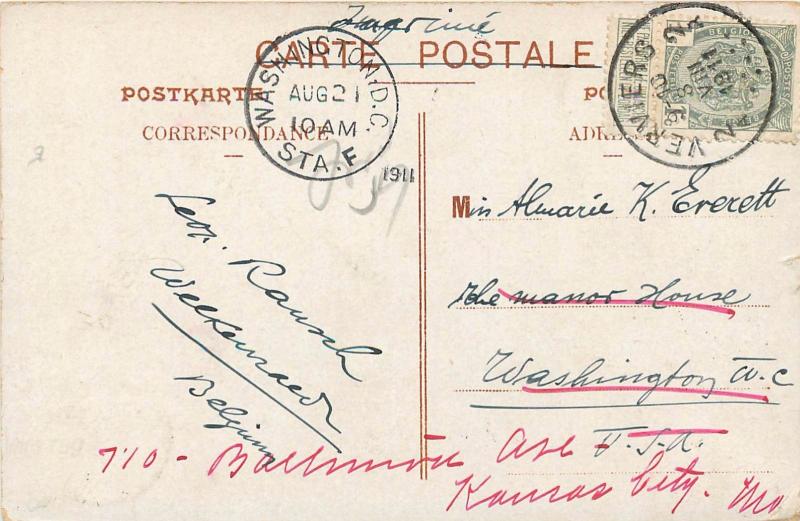 Imprimé
CARTE POSTALE
POSTKARTE
CORRESPONDANCE
WASHINGTON, D.C.
AUG 21
10 AM
STA. F
1911
BELGIQUE
VERVIERS 2
VIII
1911
Leo. Rausch
Welkenraedt
Belgium
Miss Almarie K. Everett
The Manor House
Washington D.C
U.S.A.
710 - Baltimore Ave
Kansas City. Mo